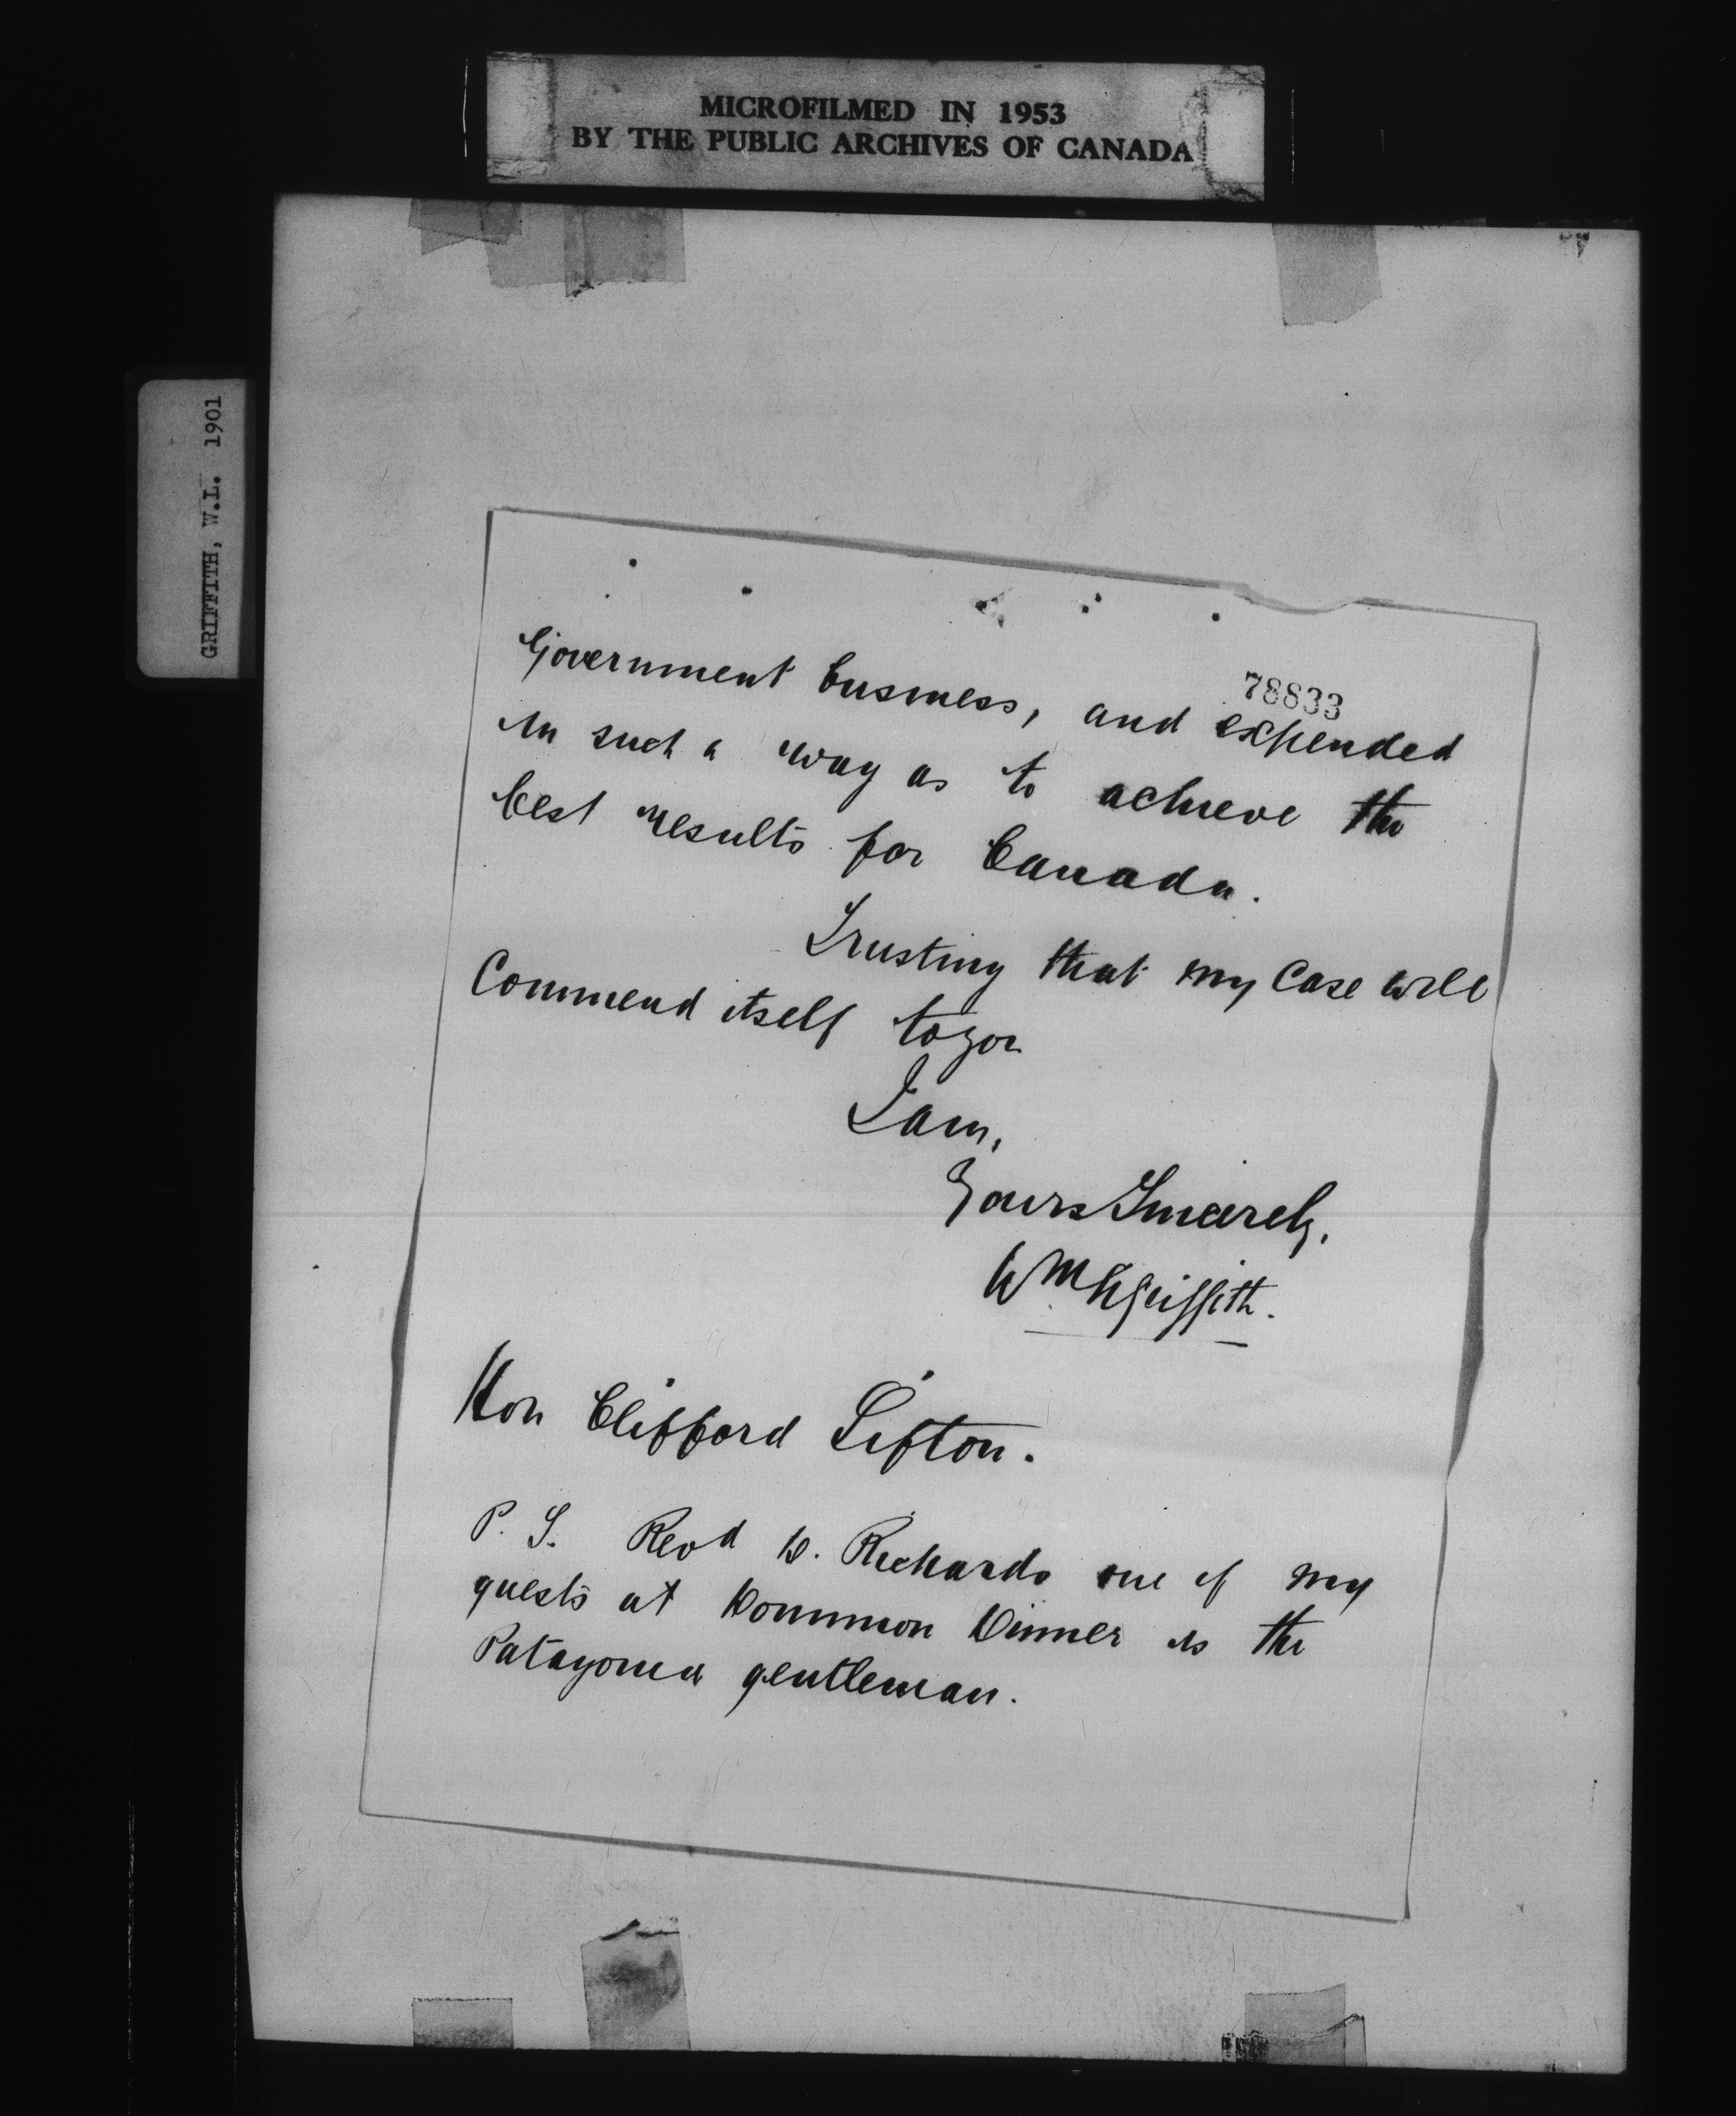 MICROFILMED IN 1953
BY THE PUBLIC ARCHIVES OF CANADA
GRIFFITH, W.L. 1901
78833
Government business, and expended
in such a way as to achieve the
best results for Canada.
Trusting that my Case will
Commend itself to you
I am,
Yours Sincerely,
Wm L Griffith.
Hon Clifford Sifton.
P. S. Revd D. Richards one of my
guests at Dominion Dinner is the
Patagonia gentleman.